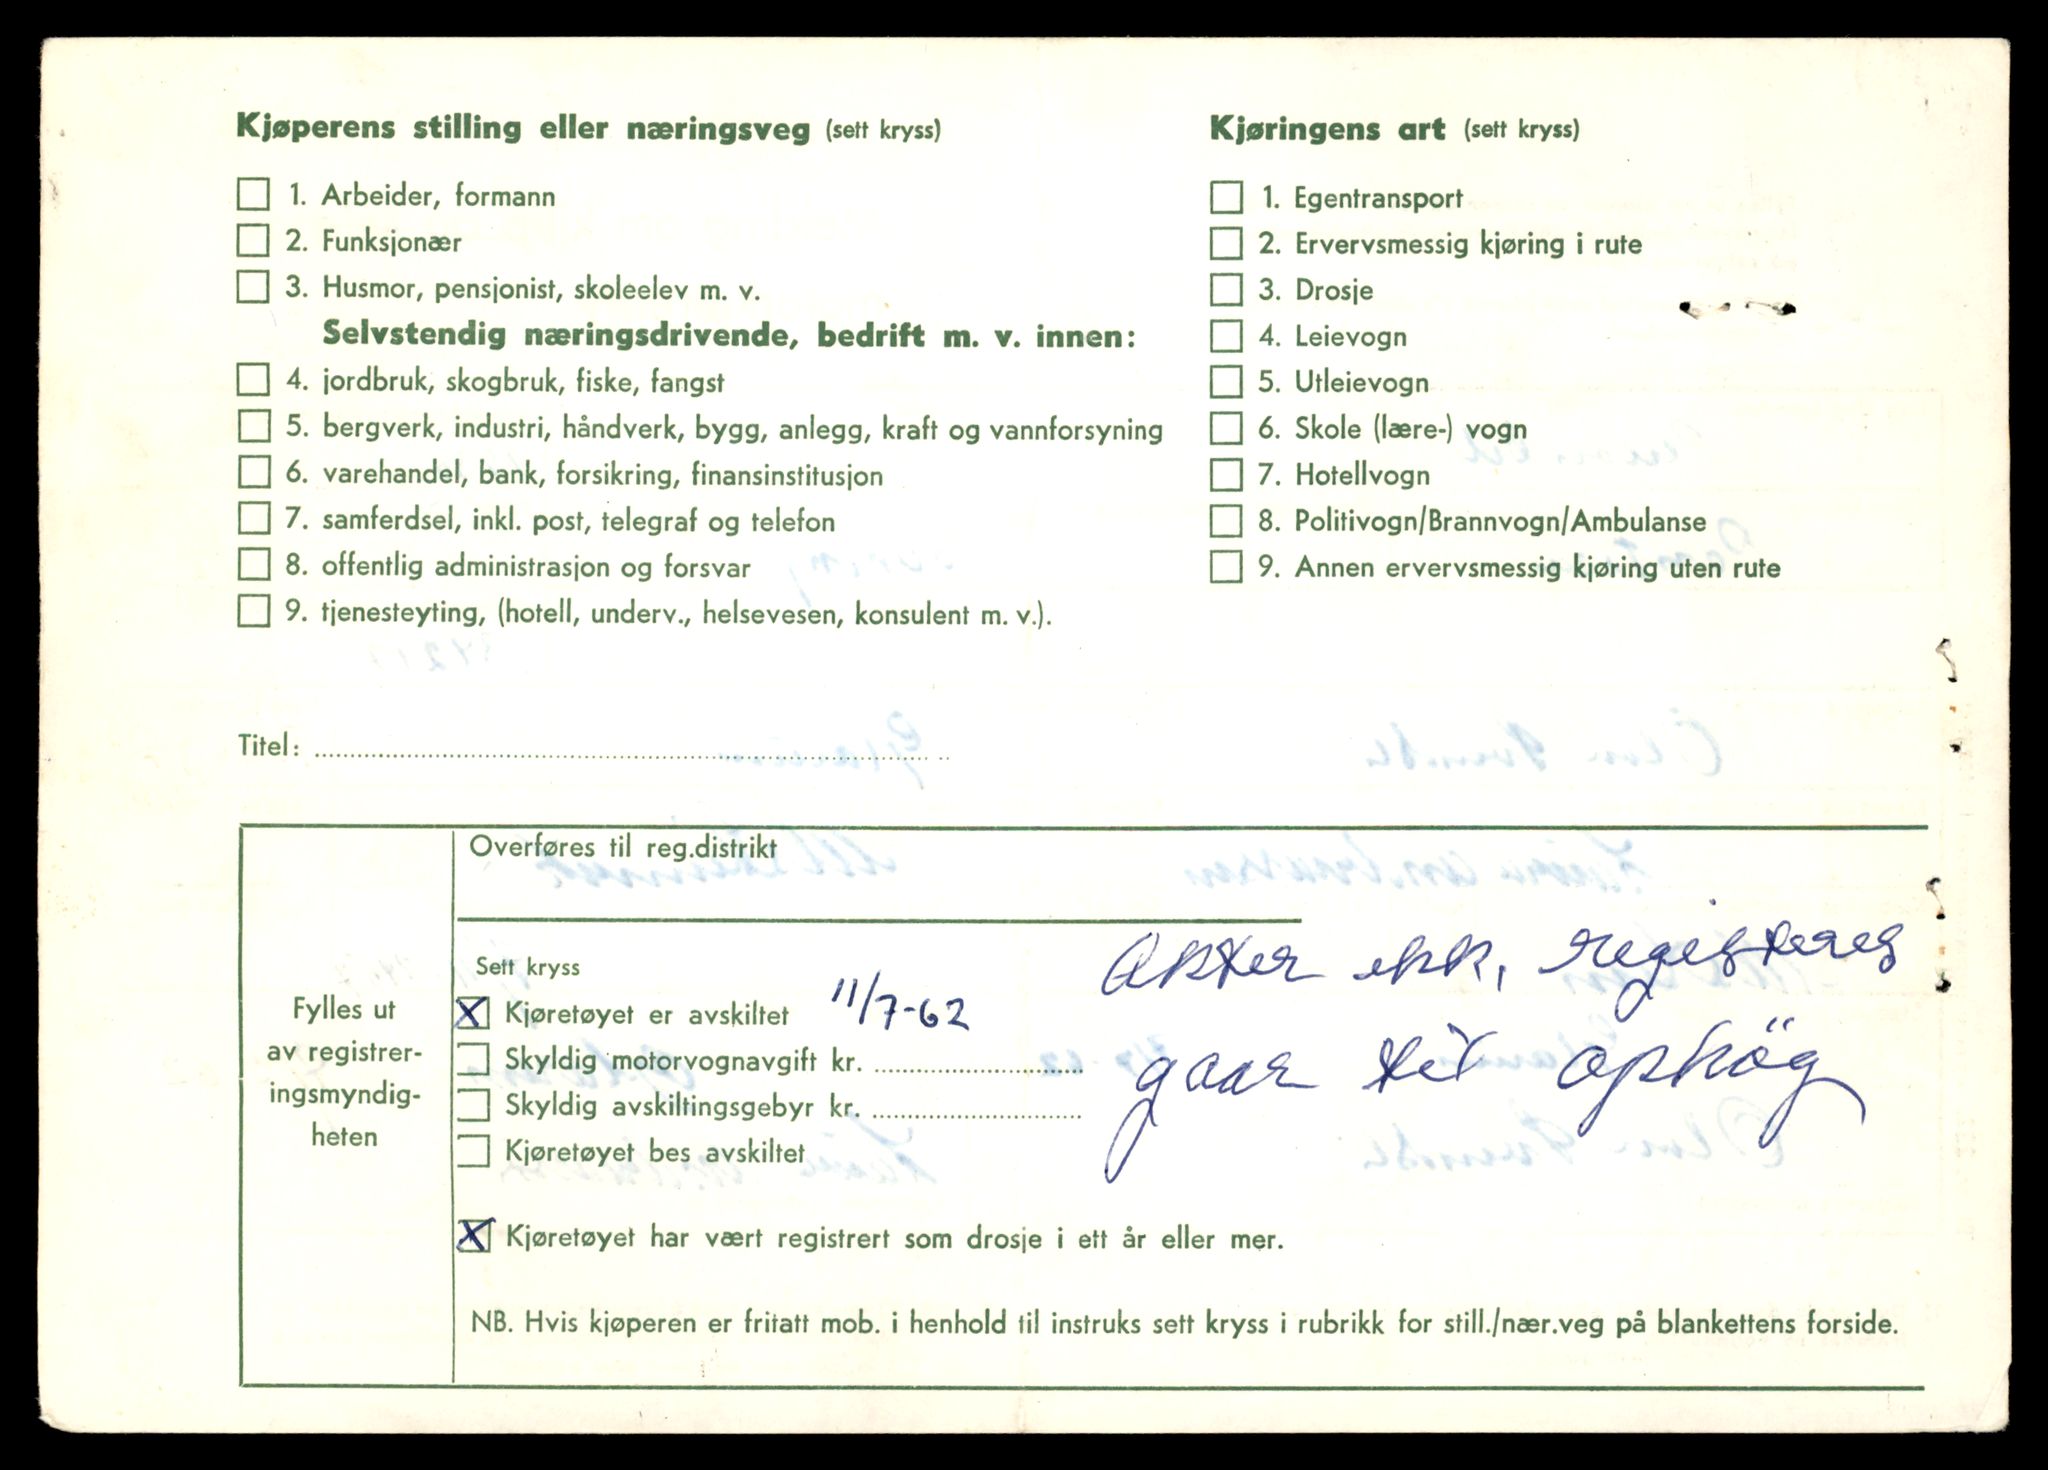 Kjøperens stilling eller næringsveg (sett kryss)
1. Arbeider, formann
2. Funksjonær
3. Husmor, pensjonist, skoleelev m. v.
Selvstendig næringsdrivende, bedrift m. v. innen:
4. jordbruk, skogbruk, fiske, fangst
5. bergverk, industri, håndverk, bygg, anlegg, kraft og vannforsyning
6. varehandel, bank, forsikring, finansinstitusjon
7. samferdsel, inkl. post, telegraf og telefon
8. offentlig administrasjon og forsvar
9. tjenesteyting, (hotell, underv., helsevesen, konsulent m. v.).
Kjøringens art (sett kryss)
1. Egentransport
2. Ervervsmessig kjøring i rute
3. Drosje
4. Leievogn
5. Utleievogn
6. Skole (lære-) vogn
7. Hotellvogn
8. Politivogn/Brannvogn/Ambulanse
9. Annen ervervsmessig kjøring uten rute
Titel:
Fylles ut
av registrer-
ingsmyndig-
heten
Overføres til reg.distrikt
Sett kryss
X Kjøretøyet er avskiltet 11/7-62
Skyldig motorvognavgift kr.
Skyldig avskiltingsgebyr kr.
Kjøretøyet bes avskiltet
ekk, registeres
gaar til ophög
X Kjøretøyet har vært registrert som drosje i ett år eller mer.
NB. Hvis kjøperen er fritatt mob. i henhold til instruks sett kryss i rubrikk for still./nær.veg på blankettens forside.